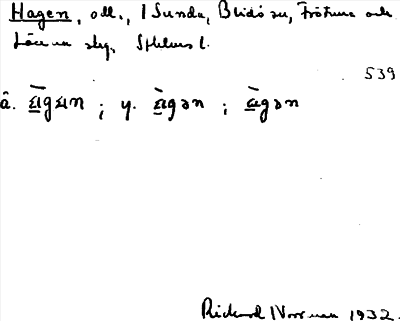 Hagen, odl., i Sunda, Blidö sn, Frötuna och
Länna skg, Sthlms l.
539
â. a̱̅gan ; y. a̱̅gən ; a̱̅gən
Rickard Norrman 1932.